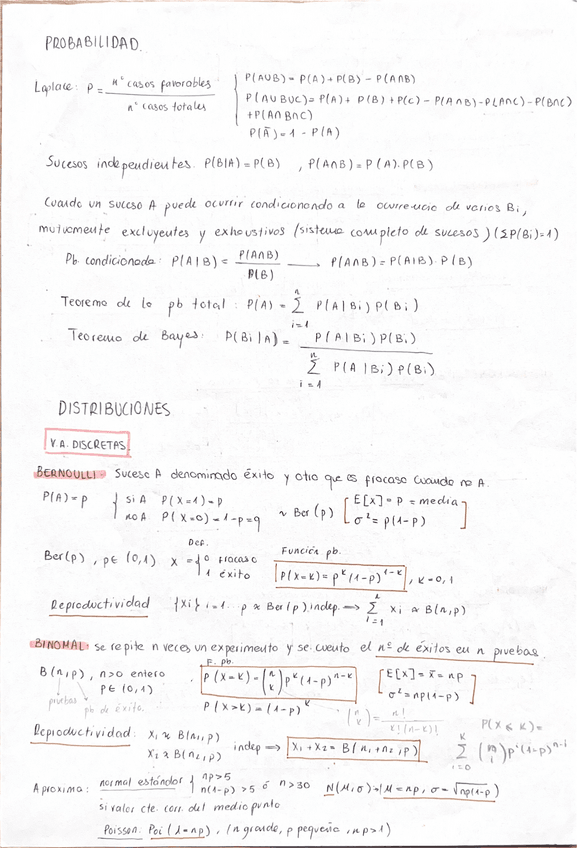 PROBABILIDAD.
Laplace: P = nº casos favorables / nº casos totales
P(A∪B) = P(A) + P(B) - P(A∩B)
P(A∪B∪C) = P(A) + P(B) + P(C) - P(A∩B) - P(A∩C) - P(B∩C)
+ P(A∩B∩C)
P(Ā) = 1 - P(A)
Sucesos independientes. P(B|A) = P(B) , P(A∩B) = P(A).P(B)
Cuando un suceso A puede ocurrir condicionando a la ocurrencia de varios Bi,
mutuamente excluyentes y exhaustivos (sistema completo de sucesos) (ΣP(Bi)=1)
Pb condicionada: P(A|B) = P(A∩B) / P(B) → P(A∩B) = P(A|B).P(B)
Teorema de la pb total: P(A) = Σ i=1 n P(A|Bi) P(Bi)
Teorema de Bayes: P(Bi|A) = P(A|Bi) P(Bi) / Σ i=1 n P(A|Bi) P(Bi)
DISTRIBUCIONES
V.A. DISCRETAS.
BERNOULLI- Suceso A denominado éxito y otro que es fracaso cuando no A.
P(A) = p { si A P(X=1) = p
no A P(X=0) = 1-p = q
~ Ber(p) [ E[X] = p = media
σ² = p(1-p) ]
Def.
Función pb.
Ber(p), p∈(0,1) X = { 0 fracaso
1 éxito
P(X=K) = p^K (1-p)^1-K , K=0,1
Reproductividad {Xi} i=1... p ≈ Ber(p) indep. ⟹ Σ i=1 n Xi ≈ B(n,p)
BINOMIAL: se repite n veces un experimento y se cuenta el nº de éxitos en n pruebas.
F. pb.
B(n,p), n>0 entero
p∈(0,1)
pruebas
pb de éxito.
P(X=K) = (n K) p^K (1-p)^n-K
[ E[X] = x̄ = np
σ² = np(1-p) ]
P(X>K) = (1-p)^K
(n K) = n! / K!(n-K)!
P(X≤K) =
Σ i=0 K (n i) p^i (1-p)^n-i
Reproductividad: X1 ≈ B(n1,p)
X2 ≈ B(n2,p)
indep ⟹ X1+X2 = B(n1+n2,p)
Aproxima: normal estándar { np>5
n(1-p)>5 ó n>30 N(μ,σ) → μ=np, σ=√np(1-p)
si valor cte. corr. del medio punto
Poisson: Poi(λ=np), (n grande, p pequeña, np>1)